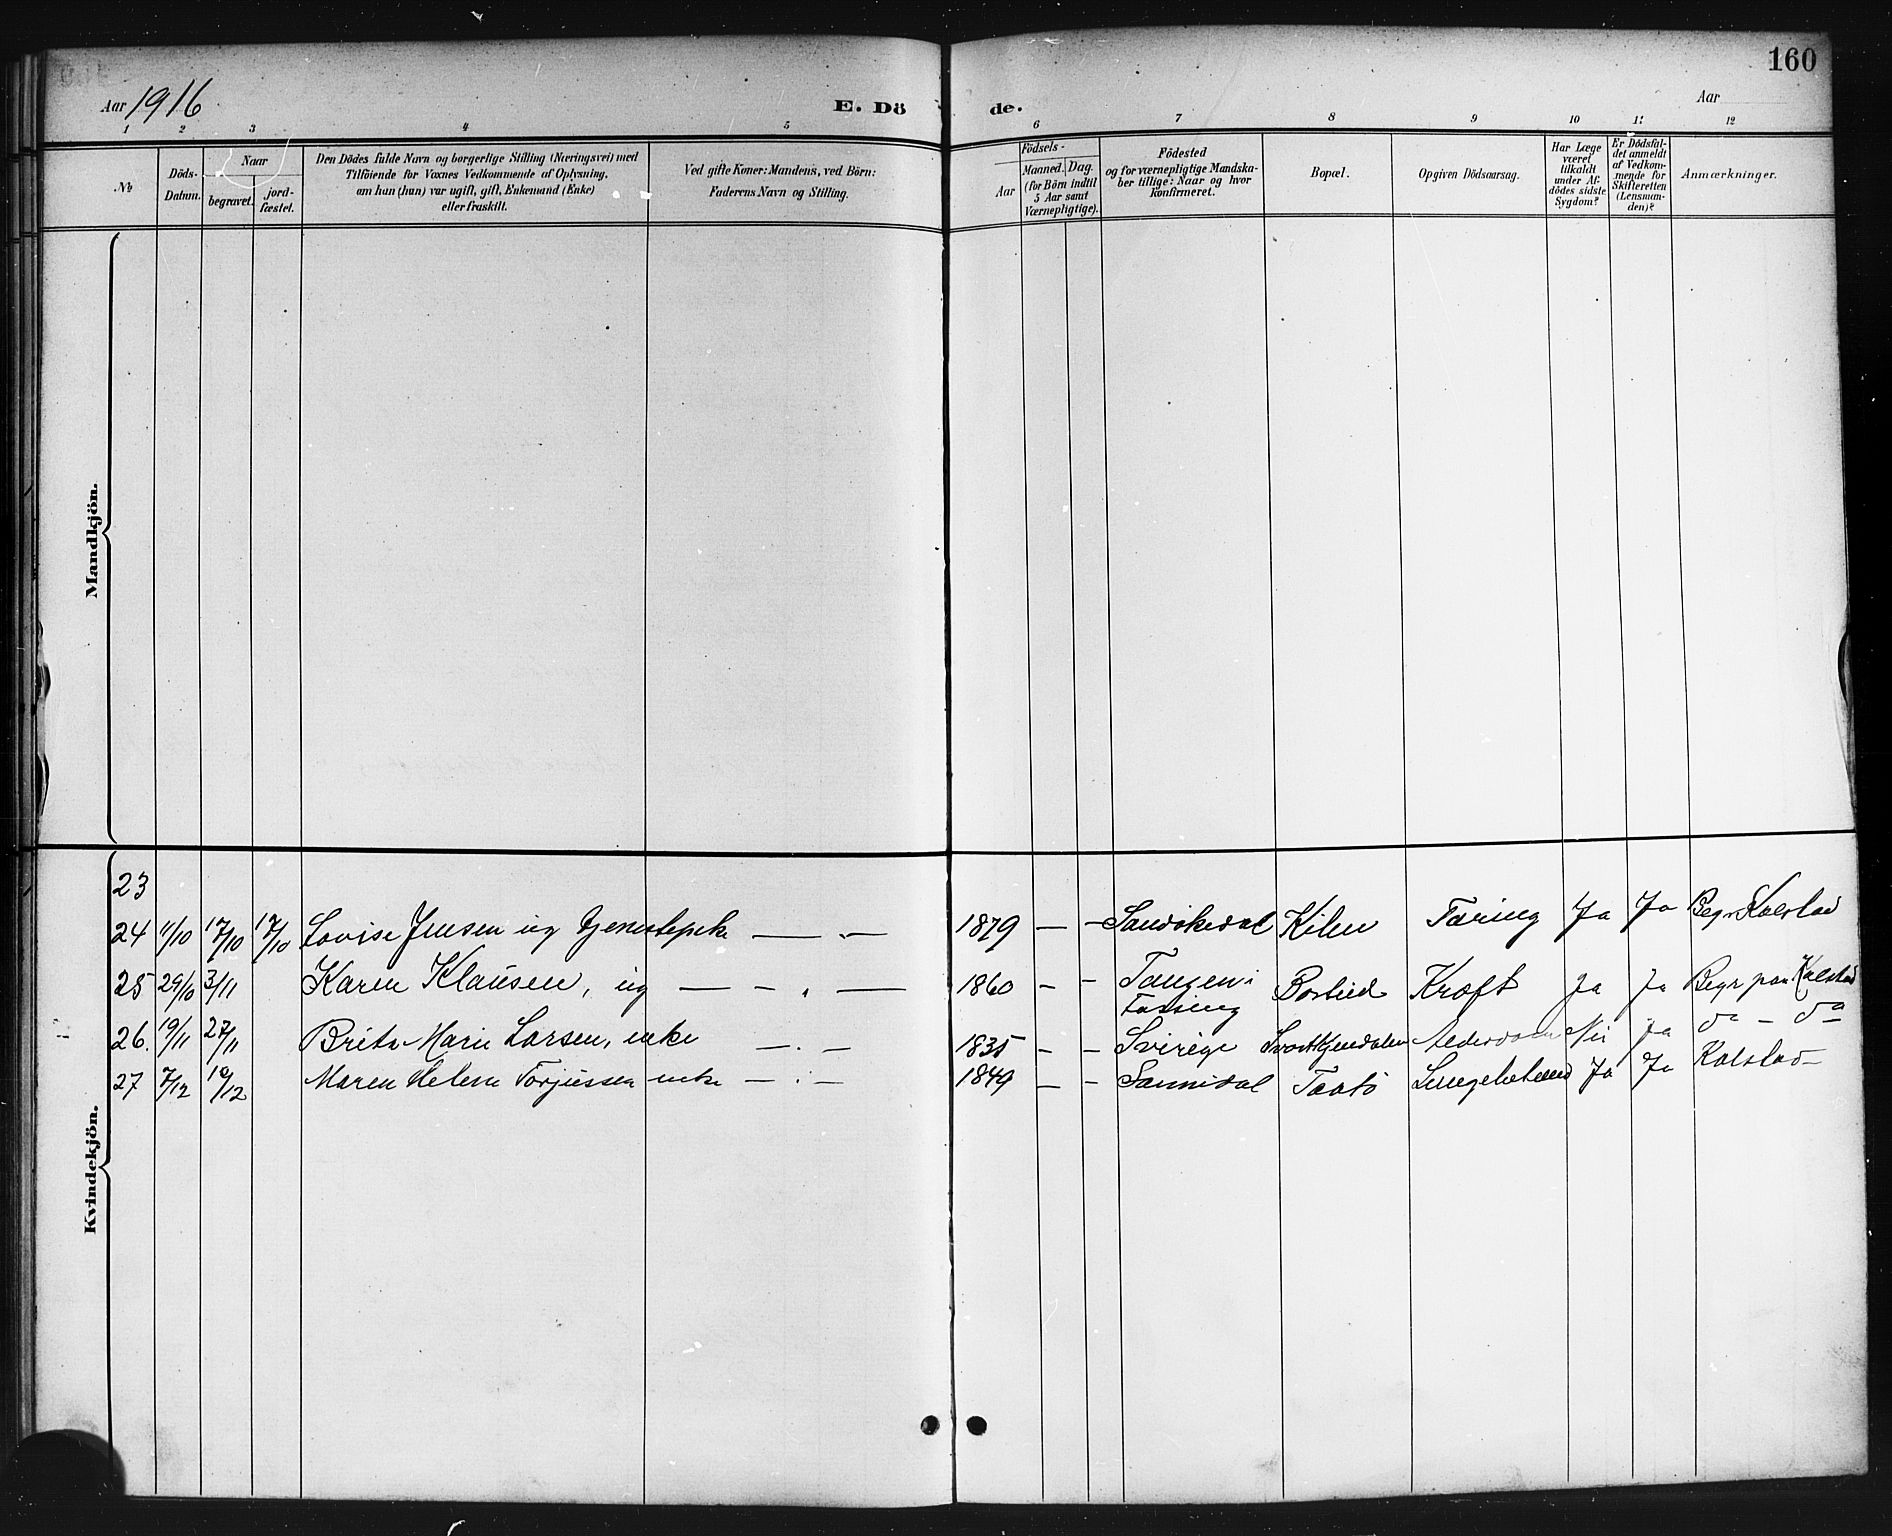 160
Aar 1916
E. Döde.
Aar
1 2 3 4 5 6 7 8 9 10 11 12
№
Döds-Datum.
Naar
begravet.
jord-fæstet.
Den Dödes fulde Navn og borgerlige Stilling (Næringsvei) med
Tilföiende for Voxnes Vedkommende af Oplysning,
om hun (han) var ugift, gift, Enkemand (Enke)
eller fraskilt.
Ved gifte Koner: Mandens, ved Börn:
Faderens Navn og Stilling.
Födsels-
Aar
Maaned.
Dag.
(for Börn indtil
5 Aar samt
Værnepligtige).
Födested
og for værnepligtige Mandska-
ber tillige: Naar og hvor
konfirmeret.
Bopæl.
Opgiven Dödsaarsag.
Har Læge
været
tilkaldt
under Af-
dödes sidste
Sygdom?
Er Dödsfal-
det anmeldt
af Vedkom-
mende for
Skifteretten
(Lensman-
den)?
Anmærkninger.
Mandkjön.
Kvindekjön.
23
24 11/10 17/10 17/10 Lovise Jensen ug tjenestepike — „ — 1879 — — Sandökedal Kilen Tæring Ja Ja Begr Kalstad
25 29/10 3/11 Karen Klausen, ug — — „ — 1860 — — Tangen i Kræft Ja Ja Begr paa Kalstad
26. 19/11 27/11 Brite Marie Larsen, enke — . — 1835 — — Sverige Svartkjendalen Nei Ja do — do
27 7/12 12 Maren Helene Torjussen enke — . — 1849 — — Sannidal Taatö Ja Ja Kalstad